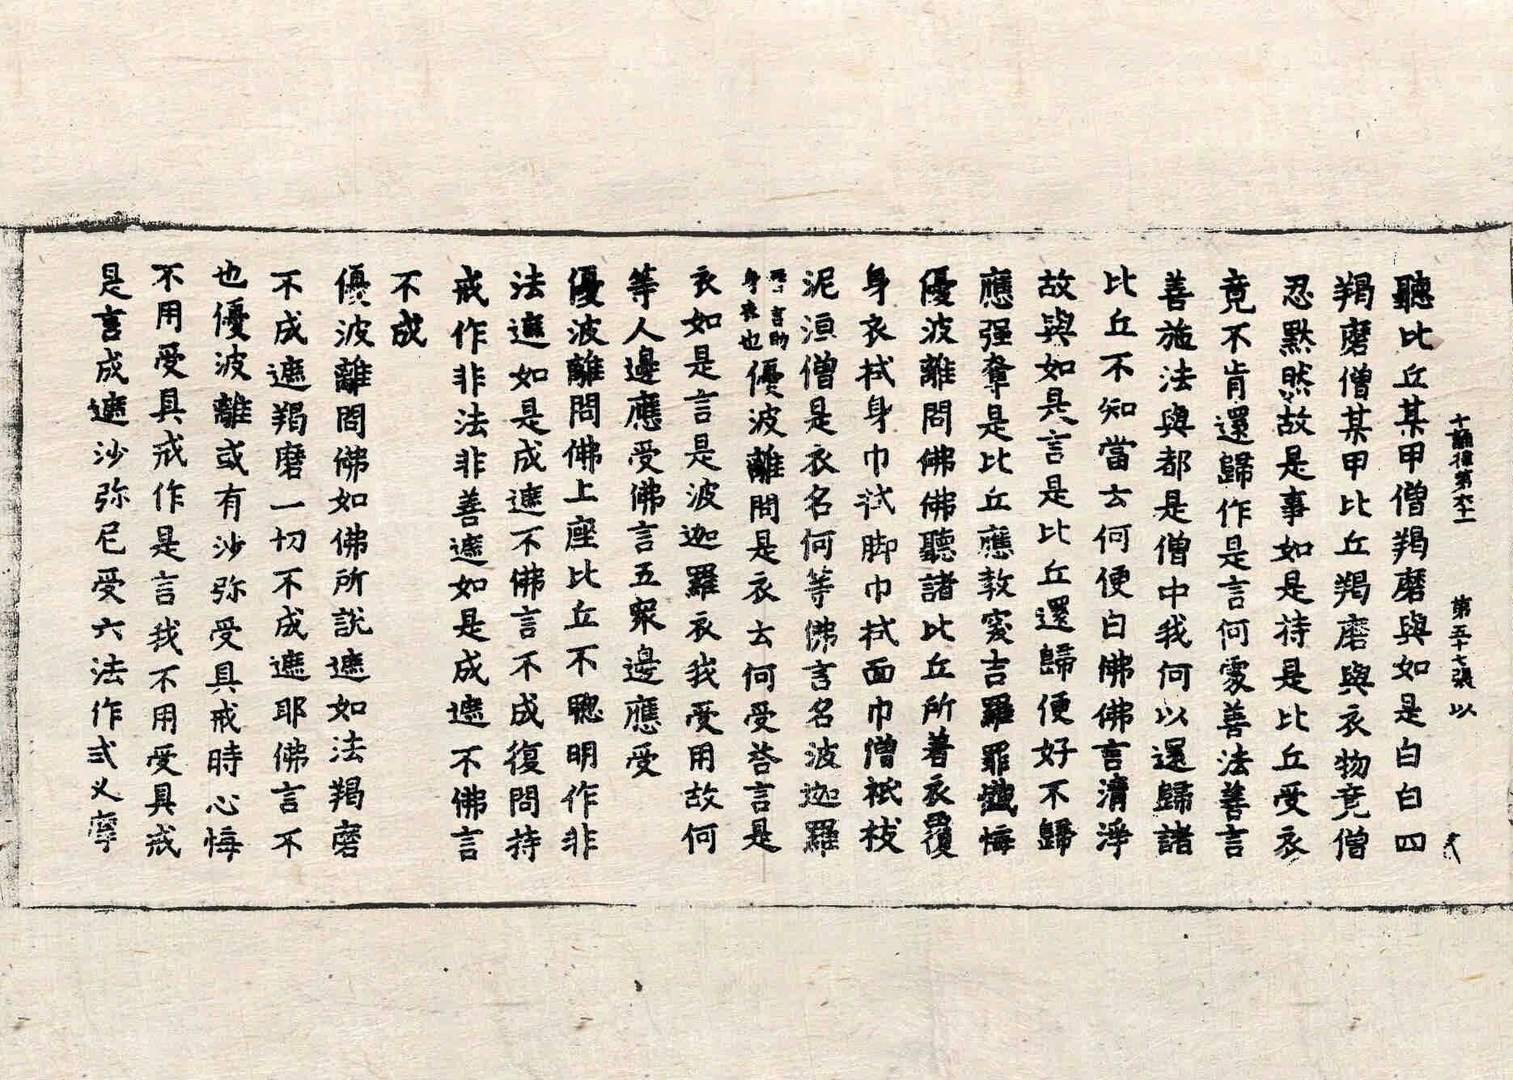 十誦律第六十一 第五十七張 以
聽比丘某甲僧羯磨與如是白白四
羯磨僧某甲比丘羯磨與衣物竟僧
忍默然故是事如是持是比丘受衣
竟不肯還歸作是言何處善法善言
善施法與都是僧中我何以還歸諸
比丘不知當云何便白佛佛言清淨
故與如是言是比丘還歸便好不歸
應强奪是比丘應教突吉羅罪懺悔
優波離問佛佛聽諸比丘所著衣覆
身衣拭身巾拭脚巾拭面巾僧祇枝
泥洹僧是衣名何等佛言名波迦羅
晉言助身衣也優波離問是衣云何受荅言是
衣如是言是波迦羅衣我受用故何
等人邊應受佛言五衆邊應受
優波離問佛上座比丘不聰明作非
法遮如是成遮不佛言不成復問持
戒作非法非善遮如是成遮不佛言
不成
優波離問佛如佛所說遮如法羯磨
不成遮羯磨一切不成遮耶佛言不
也優波離或有沙弥受具戒時心悔
不用受具戒作是言我不用受具戒
是言成遮沙弥尼受六法作式乂摩